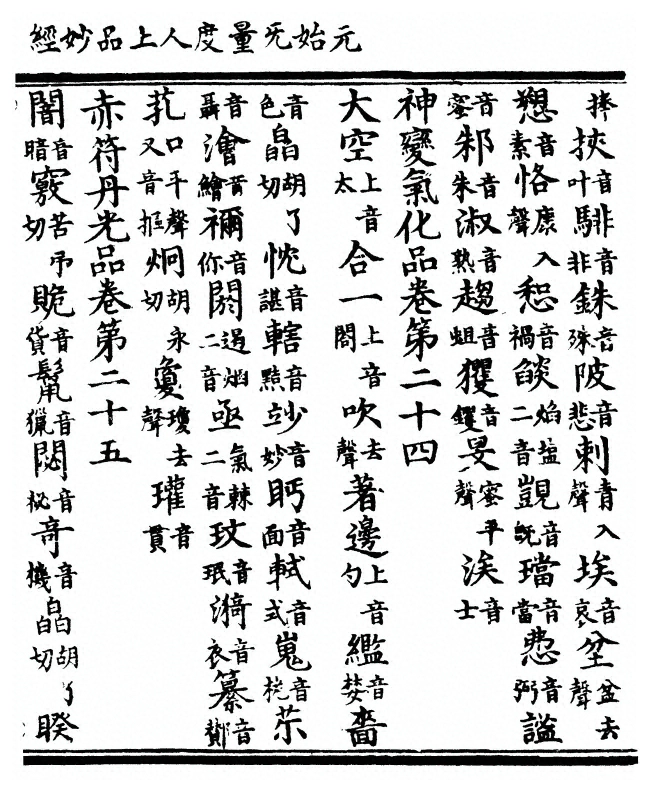 元始旡量度人上品妙經
捧挾音叶騑音非銖音殊陂音悲刺青入聲埃音哀坌盆去聲
愬音素恪康入聲惒音禍燄焰塩二音覬音旣璫音當音弼謐
音蜜邾音朱淑音熟趨音蛆玃音钁旻蜜平聲涘音士
神變氣化品卷第二十四
大空上音太合一上音閤吹去聲著邊上音勺繿音婪嗇
音色皛胡了切忱音諶轄音黠玅音妙眄音面軾音式嵬音桅
音澮音繪禰音你閼遏煙二音亟氣棘二音玟音珉漪音衣纂音酇
芤口平聲又音摳炯胡永切瓊去聲瓘音貫
赤符丹光品卷第二十五
闇音暗竅苦吊切音貨鬣音獵閟音祕奇音機皛胡了切睽